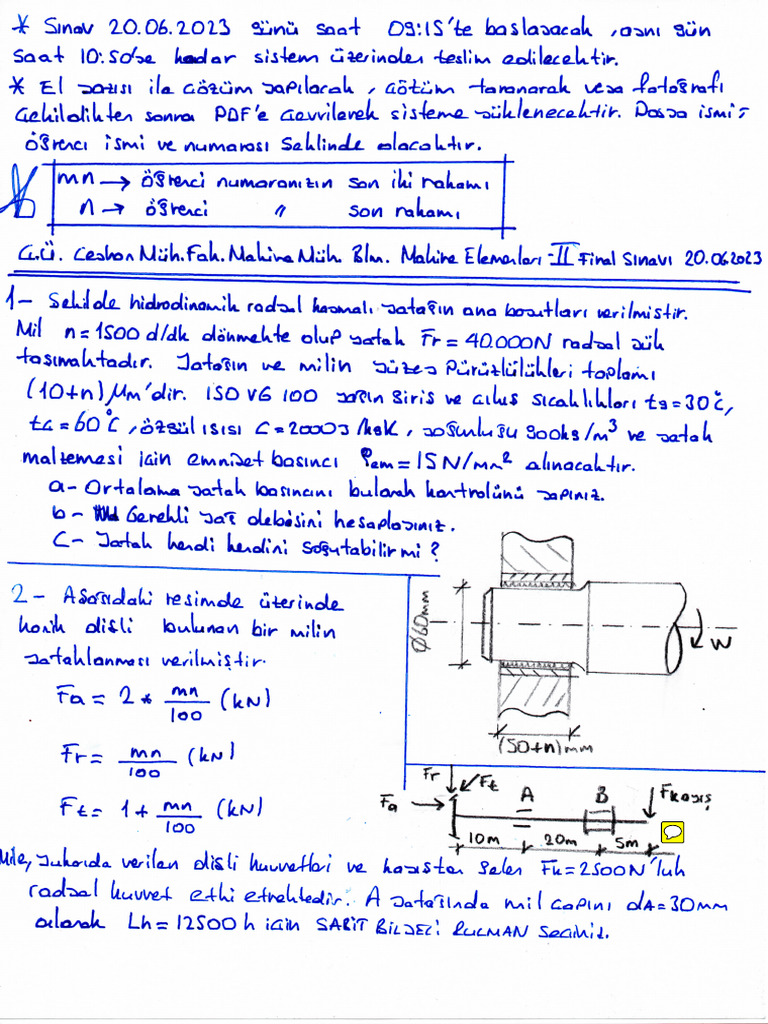 * Sınav 20.06.2023 günü saat 09:15'te başlayacak, aynı gün
saat 10:50'ye kadar sistem üzerinden teslim edilecektir.
* El yazısı ile çözüm yapılacak, çözüm taranarak veya fotoğrafı
çekildikten sonra PDF'e çevrilerek sisteme yüklenecektir. Dosya ismi;
öğrenci ismi ve numarası şeklinde olacaktır.
mn → öğrenci numaranızın son iki rakamı
n → öğrenci " son rakamı
G.Ü. Ceyhan Müh. Fak. Makina Müh. Blm. Makine Elemanları-II Final Sınavı 20.06.2023
1- Şekilde hidrodinamik radyal kaymalı yatağın ana boyutları verilmiştir.
Mil n=1500 d/dk dönmekte olup yatak Fr=40.000N radyal yük
taşımaktadır. Yatağın ve milin yüzey pürüzlülükleri toplamı
(10+n) μm'dir. ISO VG 100 yağın giriş ve çıkış sıcaklıkları tg=30°C,
tç=60°C, özgül ısısı C=2000J/kgK, yoğunluğu 900kg/m³ ve yatak
malzemesi için emniyet basıncı Pem=15N/mm² alınacaktır.
a- Ortalama yatak basıncını bularak kontrolünü yapınız.
b- Gerekli yağ debisini hesaplayınız.
c- Yatak kendi kendini soğutabilir mi?
Ø60mm
W
(50+n)mm
2- Aşağıdaki resimde üzerinde
konik dişli bulunan bir milin
yataklanması verilmiştir.
Fa = 2 * mn/100 (kN)
Fr = mn/100 (kN)
Ft = 1 + mn/100 (kN)
Fr Ft A B Fkayış
Fa
10m 20m 5m
Mile, yukarıda verilen dişli kuvvetleri ve kayıştan gelen Fk=2500N'luk
radyal kuvvet etki etmektedir. A yatağında mil çapını dA=30mm
alarak Lh=12500 h için SABİT BİLYELİ RULMAN seçiniz.